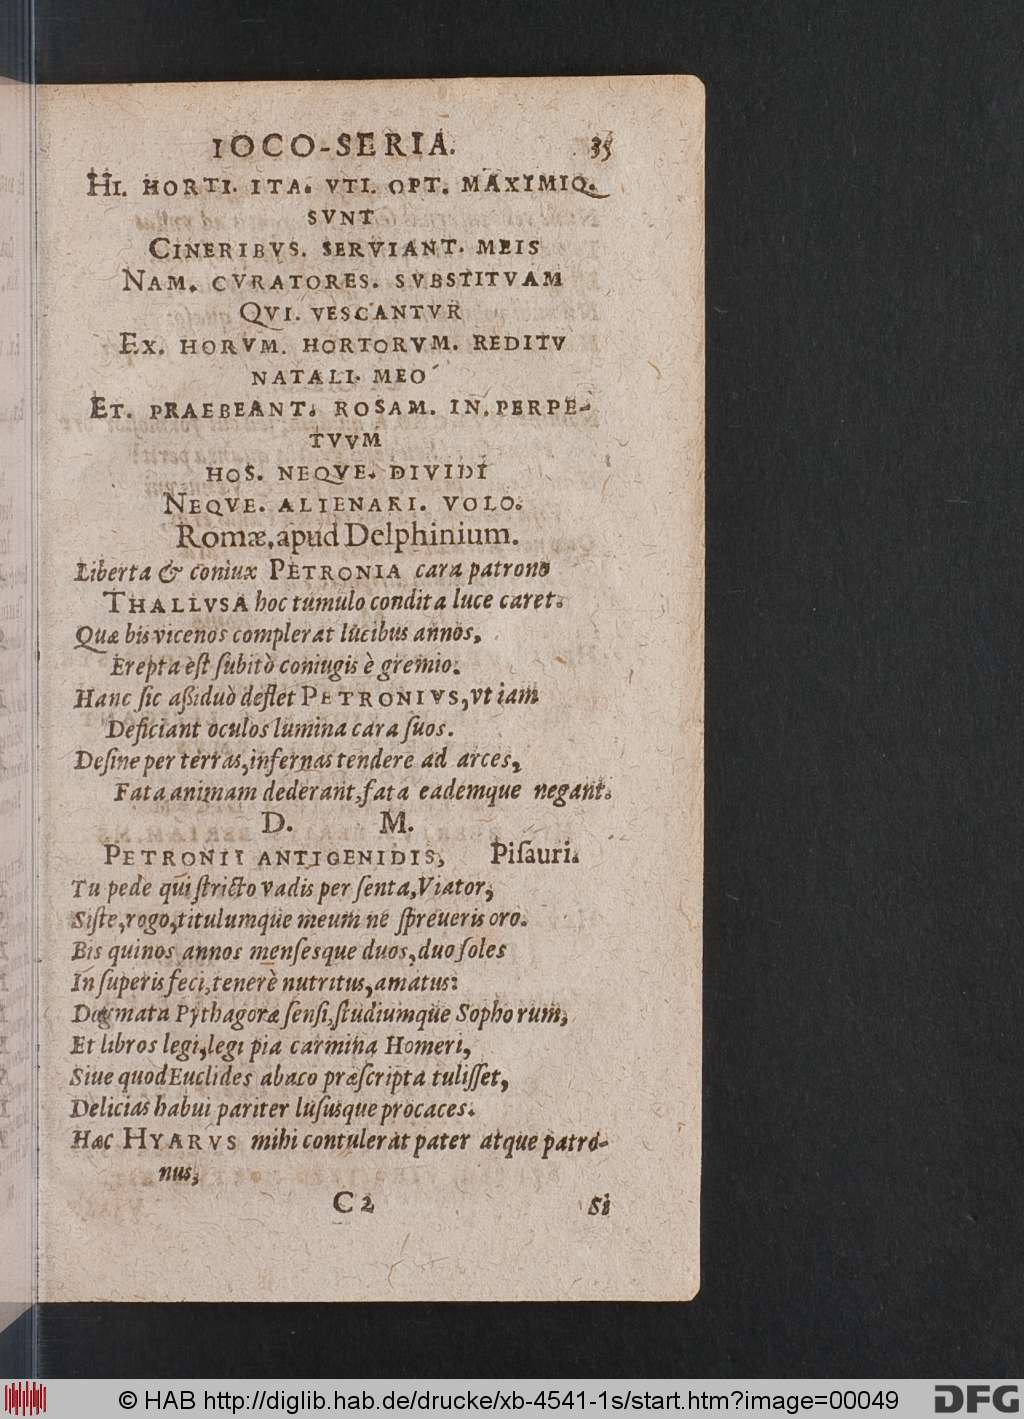 IOCO-SERIA. 35
HI. HORTI. ITA. VTI. OPT. MAXIMIQ.
SVNT
CINERIBVS. SERVIANT. MEIS
NAM. CVRATORES. SVBSTITVAM
QVI. VESCANTVR
EX. HORVM. HORTORVM. REDITV
NATALI. MEO
ET. PRAEBEANT. ROSAM. IN. PERPE-
TVVM
HOS. NEQVE. DIVIDI
NEQVE. ALIENARI. VOLO.
Romæ, apud Delphinium.
Liberta & coniux PETRONIA cara patrono
THALLVSA hoc tumulo condita luce caret.
Quæ bis vicenos complerat lucibus annos,
Erepta est ſubitò coniugis è gremio.
Hanc ſic aßiduò deflet PETRONIVS, vt iam
Deficiant oculos lumina cara ſuos.
Deſine per terras, infernas tendere ad arces,
Fata animam dederant, fata eademque negant.
D. M.
PETRONII ANTIGENIDIS, Piſauri.
Tu pede qui ſtricto vadis per ſenta, Viator,
Siſte, rogo, titulumque meum ne ſpreueris oro.
Bis quinos annos menſesque duos, duo ſoles
In ſuperis feci, tenerè nutritus, amatus:
Dogmata Pythagoræ ſenſi, ſtudiumque Sophorum,
Et libros legi, legi pia carmina Homeri,
Siue quod Euclides abaco præſcripta tuliſſet,
Delicias habui pariter luſusque procaces.
Hæc HYARVS mihi contulerat pater atque patro-
nus,
C 2 Si
© HAB http://diglib.hab.de/drucke/xb-4541-1s/start.htm?image=00049 DFG